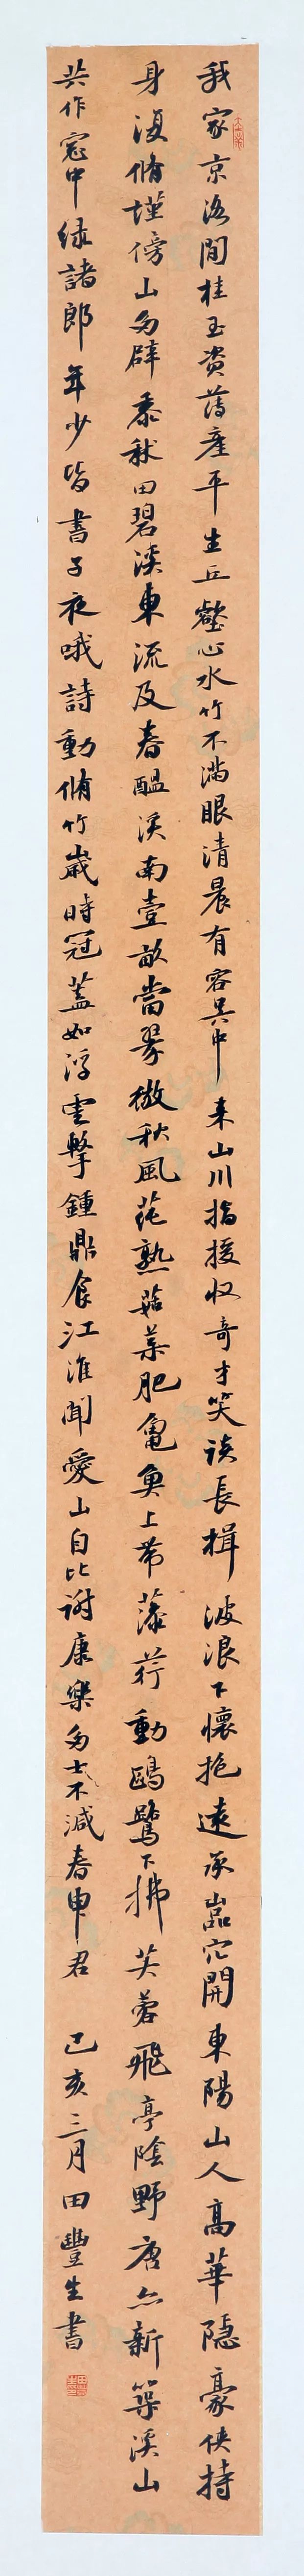 我家京洛間桂玉资薄產平生丘壑心水竹不满眼清晨有客吳中来山川指援收奇才笑谈長揖波浪下懷抱遠承嵓穴開東陽山人高華隱豪侠持
身復脩墐傍山多辟黍秫田碧溪東流及春醖溪南壹畝當翠微秋風蒓熟菰菜肥龟魚上带藻荇動鷗鷺下拂芙蓉飛亭陰野唐亦新築溪山
共作寃中緑諸郎年少皆書子夜哦詩動脩竹歲時冠蓋如浮雲擊鍾鼎食江淮聞愛山自比谢康樂多士不減春申君 己亥三月田豐生書